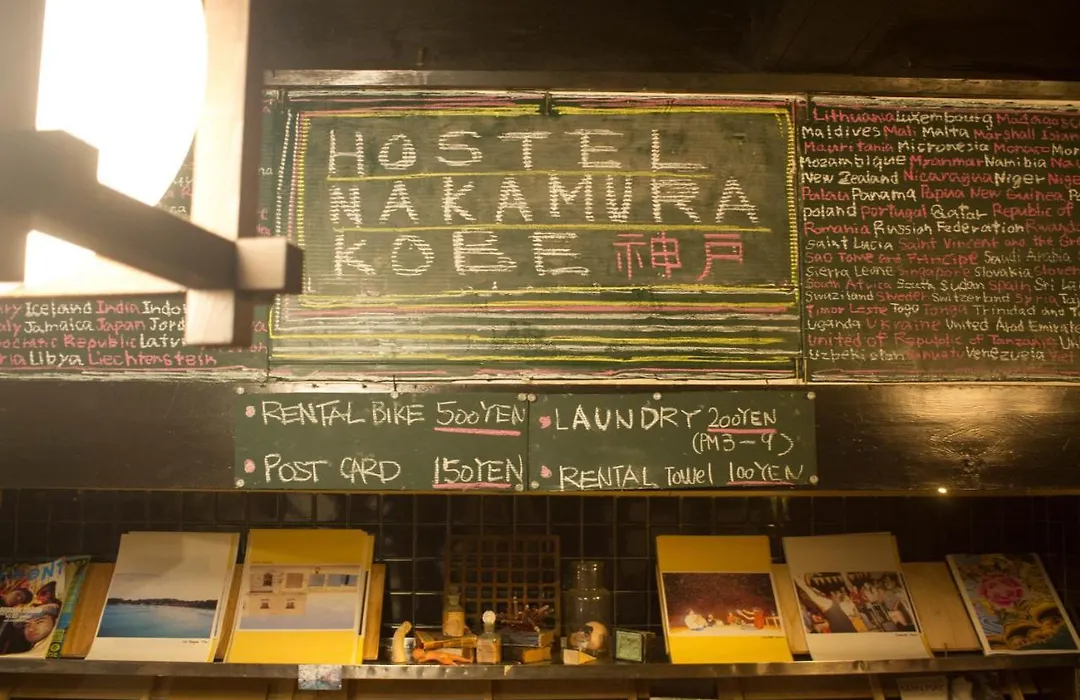 HOSTEL
NAKAMURA
KOBE 神戸
Iceland India
Jamaica Japan
Republic Latv
Libya Liechtenstein
Lithuania Luxembourg
Maldives Mali Malta Marshall
Mauritania Micronesia Monaco
Mozambique Myanmar Namibia
New Zealand Nicaragua Niger
Palau Panama Papua New Guinea
Poland Portugal Qatar Republic of
Romania Russian Federation Rwanda
Saint Lucia Saint Vincent and the Gr
Sao Tome and Principe Saudi Arabia
Sierra Leone Singapore Slovakia
South Africa South Sudan Spain Sri
Swaziland Sweden Switzerland Syria
Timor Leste Togo Tonga Trinidad and
Uganda Ukraine United Arab Emirate
United of Republic of Tanzania
Uzbekistan Vanuatu Venezuela
RENTAL BIKE 500YEN
POST CARD 150YEN
LAUNDRY 200YEN
(PM3-9)
RENTAL Towel 100YEN